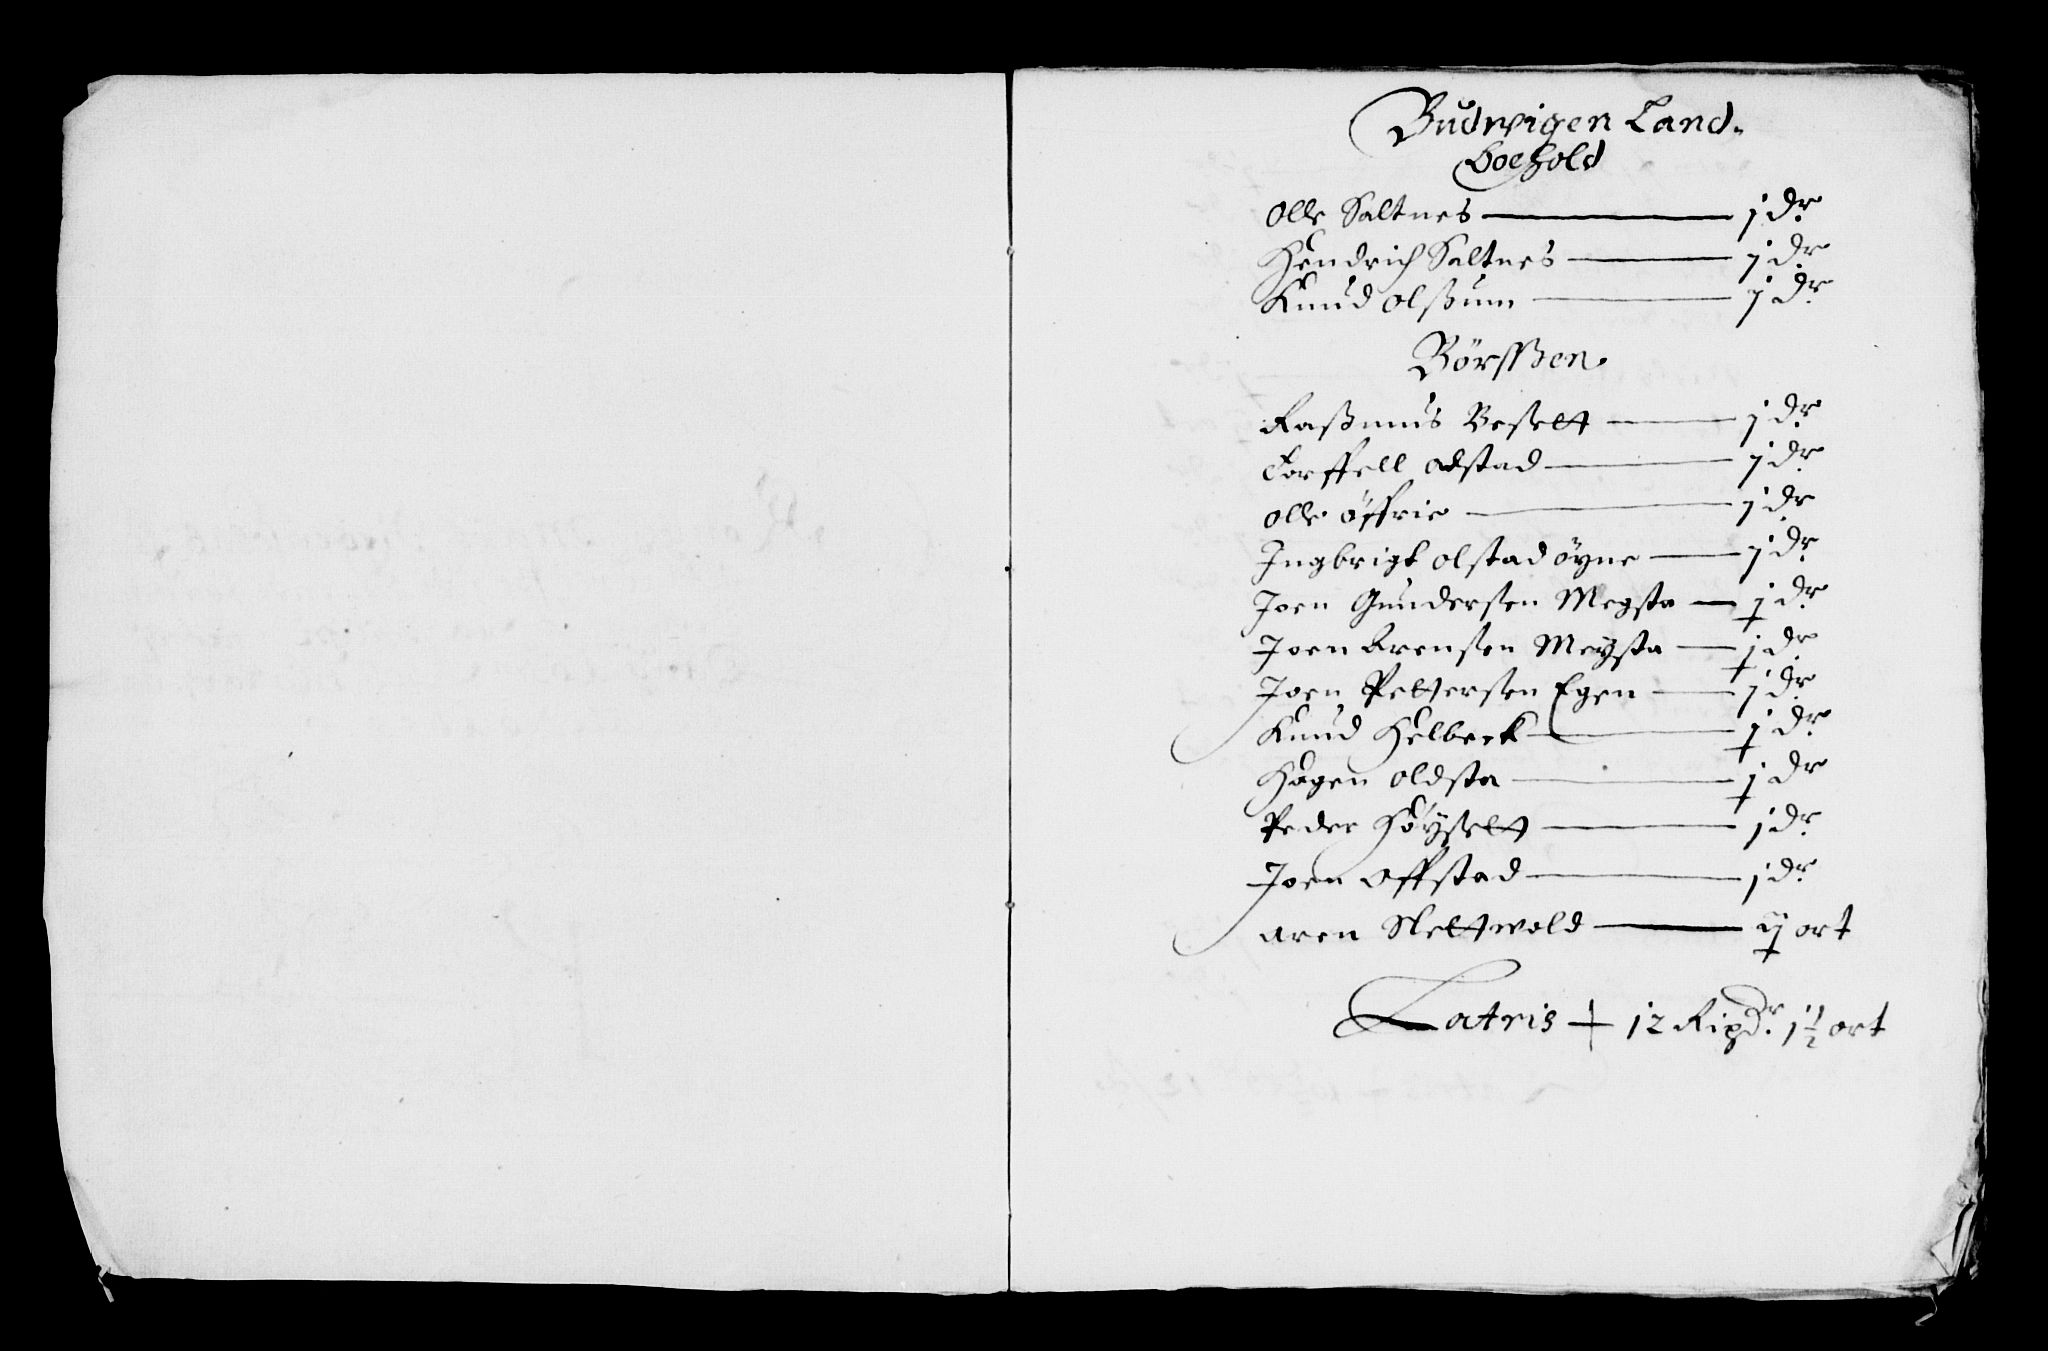 Budwigen Land.
Boehold
Olle Saltnes — j dr
Hendrich Saltnes — j dr
Knud Olßum — j dr
Børsßen
Raßmus Beselt — j dr
Torffell adstad — j dr
Olle Øffrie — j dr
Ingbrigt olstad øyne — j dr
Joen Gundersen Megsta — j dr
Joen Arensen Meysta — j dr
Joen Pettersen Egen — j dr
Knud Helbeck — j dr
Hagen Oldsta — j dr
Peder Høyselt — j dr
Joen Offstad — j dr
Aren Slettwold — ij ort
Latris + 12 Ripdr. 1½ ort